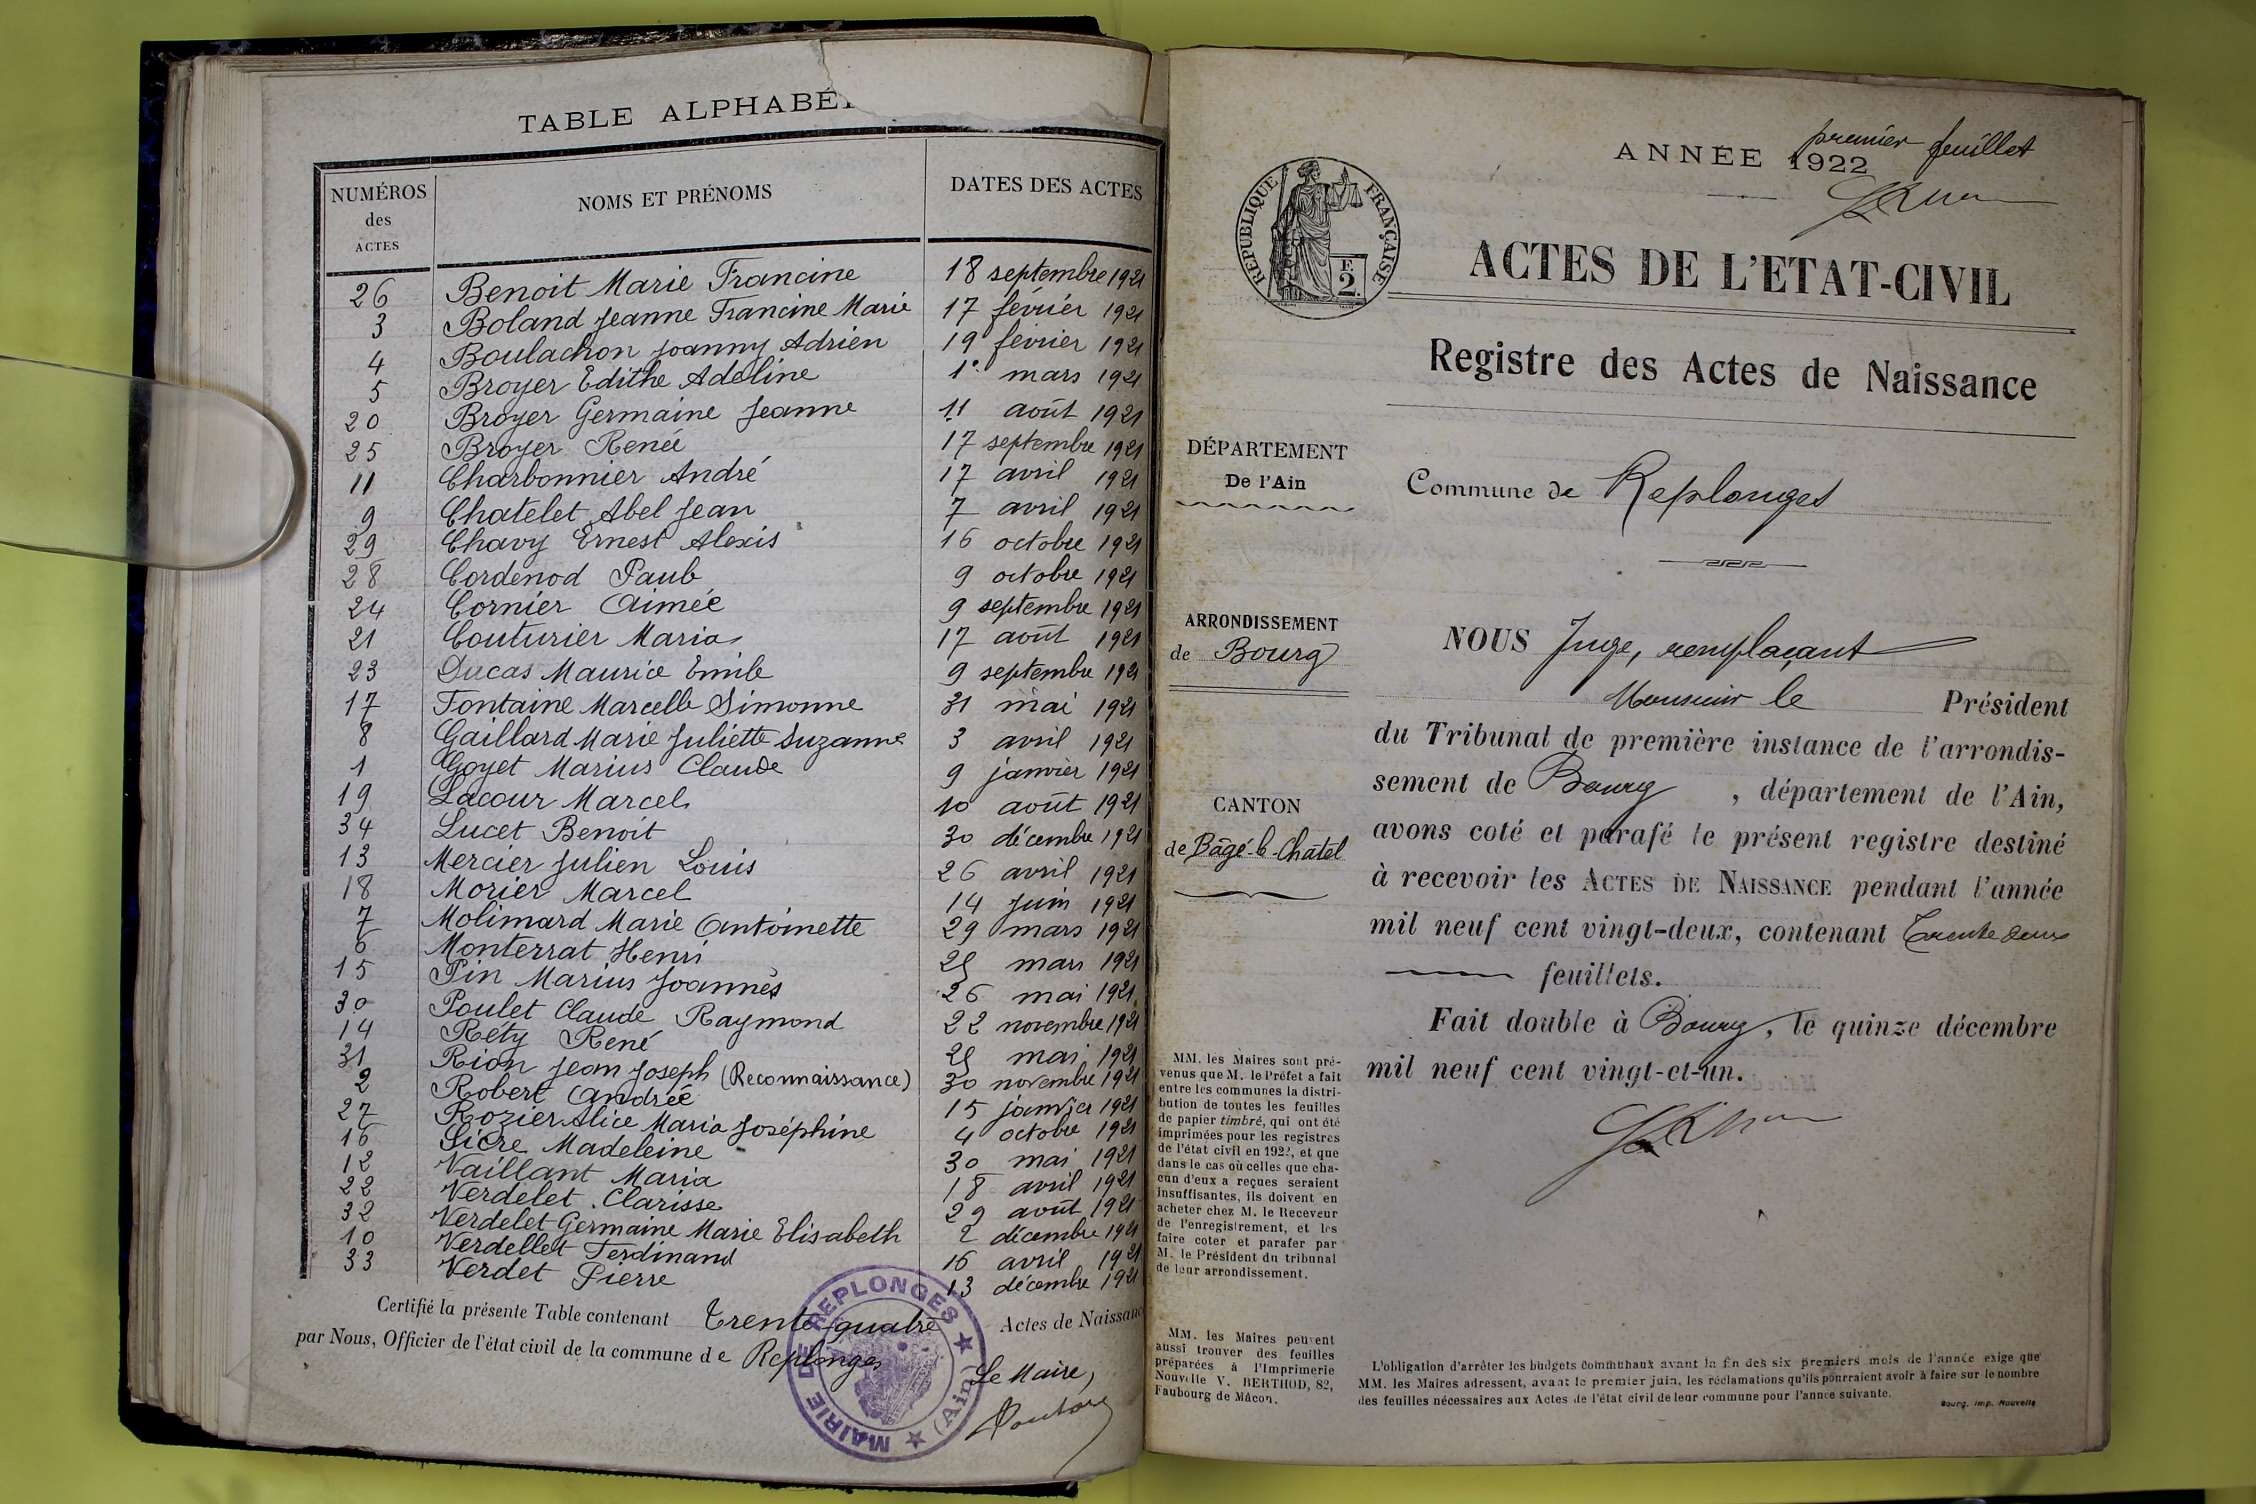 TABLE ALPHABÉT
NUMÉROS des ACTES
NOMS ET PRÉNOMS
DATES DES ACTES
26 Benoit Marie Francine 18 septembre 1921
3 Boland Jeanne Francine Marie 17 février 1921
4 Boulachon Joanny Adrien 19 février 1921
5 Broyer Edithe Adéline 1er mars 1921
20 Broyer Germaine Jeanne 11 août 1921
25 Broyer Renée 17 septembre 1921
11 Charbonnier André 17 avril 1921
9 Chatelet Abel Jean 7 avril 1921
29 Chavy Ernest Alexis 16 octobre 1921
28 Cordenod Paul 9 octobre 1921
24 Cornier Aimée 9 septembre 1921
21 Couturier Maria 17 août 1921
23 Ducas Maurice Emile 9 septembre 1921
17 Fontaine Marcelle Simonne 31 mai 1921
8 Gaillard Marie Juliette Suzanne 3 avril 1921
1 Goyet Marius Claude 9 janvier 1921
19 Lacour Marcel 10 août 1921
34 Lucet Benoit 30 décembre 1921
13 Mercier Julien Louis 26 avril 1921
18 Morier Marcel 14 juin 1921
7 Molimard Marie Antoinette 29 mars 1921
6 Monterrat Henri mars 1921
15 Pin Marius Joannès 26 mai 1921
30 Poulet Claude Raymond 22 novembre 1921
14 Réty René mai 1921
31 Rion Jean Joseph (Reconnaissance) 30 novembre 1921
2 Robert Andrée 15 janvier 1921
27 Rozier Alice Maria Joséphine 4 octobre 1921
16 Sicre Madeleine 30 mai 1921
12 Vaillant Maria 18 avril 1921
22 Verdelet Clarisse 29 août 1921
32 Verdelet Germaine Marie Elisabeth 2 décembre 1921
10 Verdellet Ferdinand 16 avril 1921
33 Verdet Pierre 13 décembre 1921
Certifié la présente Table contenant Trente-quatre Actes de Naissanc
par Nous, Officier de l'état civil de la commune de Replonges
Le Maire,
MAIRIE DE REPLONGES (Ain)
premier feuillet
ANNÉE 1922
RÉPUBLIQUE FRANÇAISE
F. 2.
ACTES DE L'ETAT-CIVIL
Registre des Actes de Naissance
DÉPARTEMENT
De l'Ain
Commune de Replonges
ARRONDISSEMENT
de Bourg
CANTON
de Bâgé-le-Châtel
NOUS Juge, remplaçant
Monsieur le Président
du Tribunal de première instance de l'arrondis-
sement de Bourg, département de l'Ain,
avons coté et parafé le présent registre destiné
à recevoir les ACTES DE NAISSANCE pendant l'année
mil neuf cent vingt-deux, contenant Trente deux
feuillets.
Fait double à Bourg, le quinze décembre
mil neuf cent vingt-et-un.
MM. les Maires sont pré-
venus que M. le Préfet a fait
entre les communes la distri-
bution de toutes les feuilles
de papier timbré, qui ont été
imprimées pour les registres
de l'état civil en 1922, et que
dans le cas où celles que cha-
cun d'eux a reçues seraient
insuffisantes, ils doivent en
acheter chez M. le Receveur
de l'enregistrement, et les
faire coter et parafer par
M. le Président du tribunal
de leur arrondissement.
MM. les Maires peuvent
aussi trouver des feuilles
préparées à l'Imprimerie
Nouvelle V. BERTHOD, 82,
Faubourg de Mâcon.
L'obligation d'arrêter les budgets communaux avant la fin des six premiers mois de l'année exige que
MM. les Maires adressent, avant le premier juin, les réclamations qu'ils pourraient avoir à faire sur le nombre
des feuilles nécessaires aux Actes de l'état civil de leur commune pour l'année suivante.
Bourg. Imp. Nouvelle